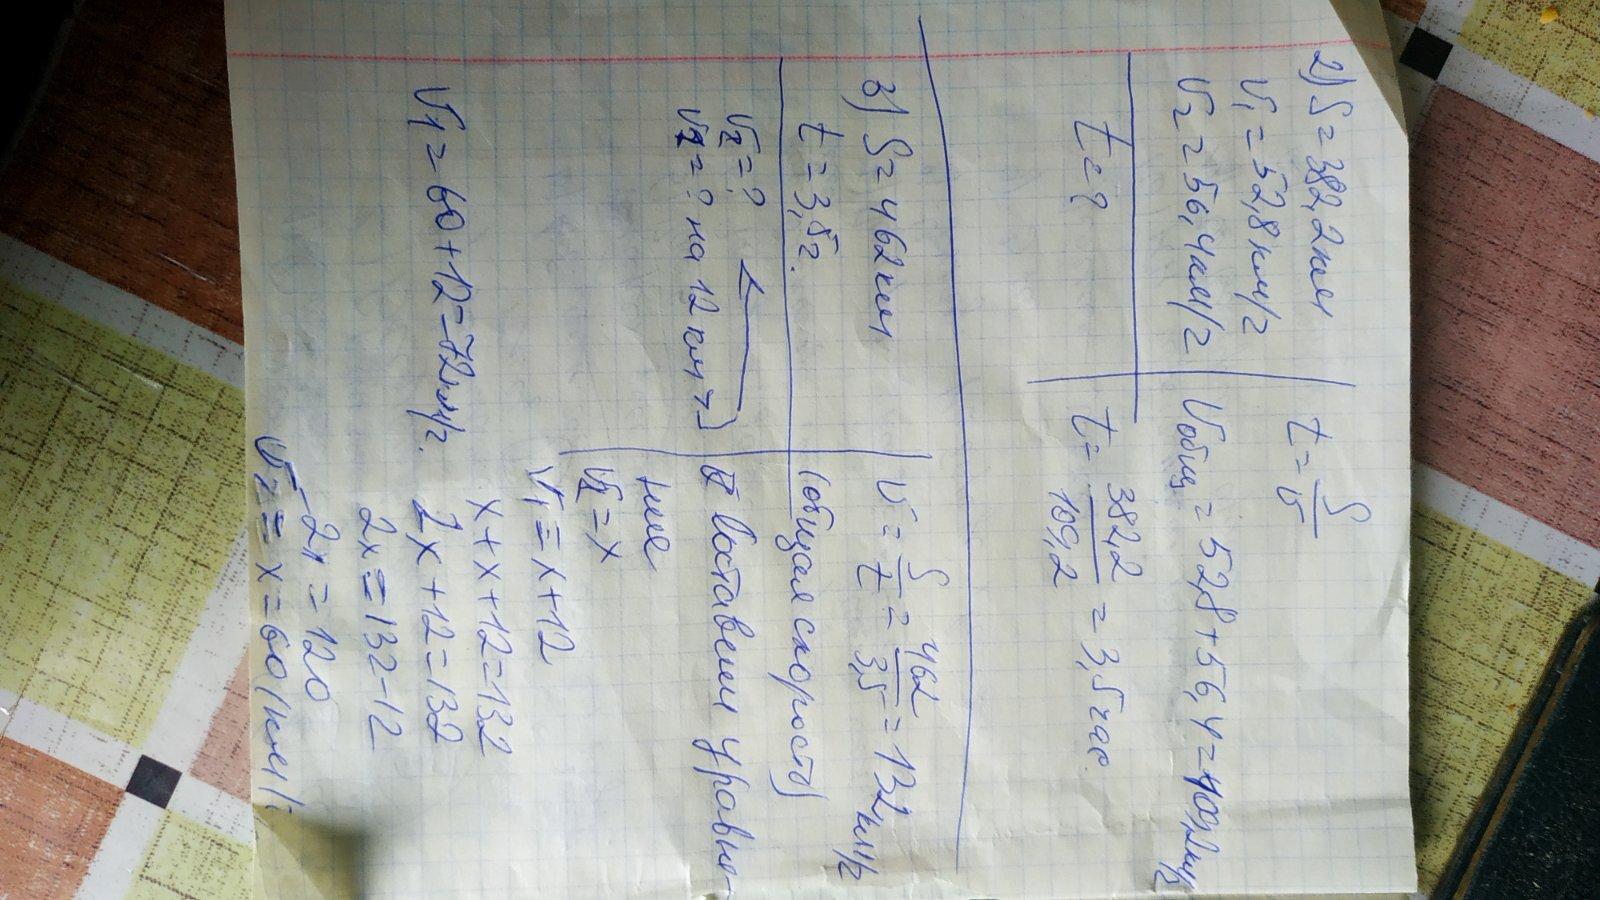 2) S = 382,2 км
V₁ = 52,8 км/г
V₂ = 56,4 км/г
t = ?
t = S/v
Vобщ = 52,8 + 56,4 = 109,2 км/г
t = 382,2/109,2 = 3,5 час.
3) S = 462 км
t = 3,5 г.
V₂ = ?
V₁ = ? на 12 км/г >
V = S/t = 462/3,5 = 132 км/г
(общая скорость)
Составим уравне-
ние
V₂ = x
V₁ = x + 12
x + x + 12 = 132
2x + 12 = 132
2x = 132 - 12
2x = 120
V₂ = x = 60 (км/г
V₁ = 60 + 12 = 72 км/г.